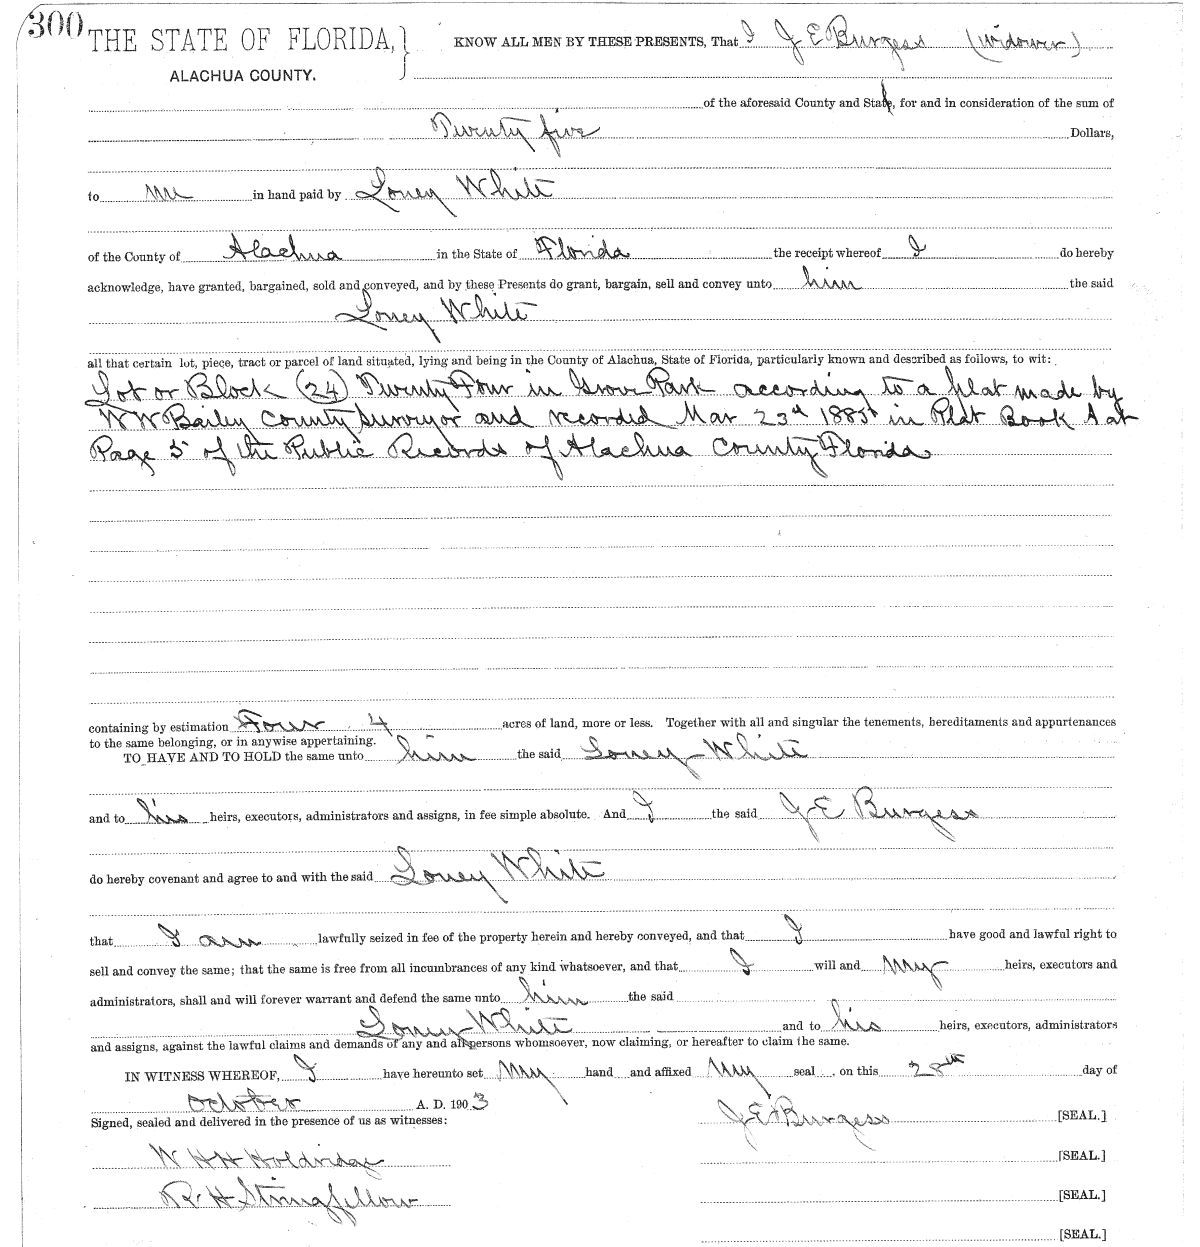 300
THE STATE OF FLORIDA,
ALACHUA COUNTY.
KNOW ALL MEN BY THESE PRESENTS, That I J E Burgess (widower)
of the aforesaid County and State, for and in consideration of the sum of
Twenty five Dollars,
to me in hand paid by Loney White
of the County of Alachua in the State of Florida the receipt whereof I do hereby
acknowledge, have granted, bargained, sold and conveyed, and by these Presents do grant, bargain, sell and convey unto him the said
Loney White
all that certain lot, piece, tract or parcel of land situated, lying and being in the County of Alachua, State of Florida, particularly known and described as follows, to wit:
Lot or Block (24) Twenty Four in Grove Park according to a plat made by
W W Baily County Surveyor and recorded Mar 23d 1885 in Plat Book A at
Page 5 of the Public Records of Alachua County Florida
containing by estimation Four 4 acres of land, more or less. Together with all and singular the tenements, hereditaments and appurtenances
to the same belonging, or in anywise appertaining.
TO HAVE AND TO HOLD the same unto him the said Loney White
and to his heirs, executors, administrators and assigns, in fee simple absolute. And I the said J E Burgess
do hereby covenant and agree to and with the said Loney White
that I am lawfully seized in fee of the property herein and hereby conveyed, and that I have good and lawful right to
sell and convey the same; that the same is free from all incumbrances of any kind whatsoever, and that I will and my heirs, executors and
administrators, shall and will forever warrant and defend the same unto him the said
Loney White and to his heirs, executors, administrators
and assigns, against the lawful claims and demands of any and all persons whomsoever, now claiming, or hereafter to claim the same.
IN WITNESS WHEREOF, I have hereunto set my hand and affixed my seal on this 28th day of
October A. D. 1903
Signed, sealed and delivered in the presence of us as witnesses:
J E Burgess [SEAL.]
W H H Holdridge [SEAL.]
R. H Stringfellow [SEAL.]
[SEAL.]